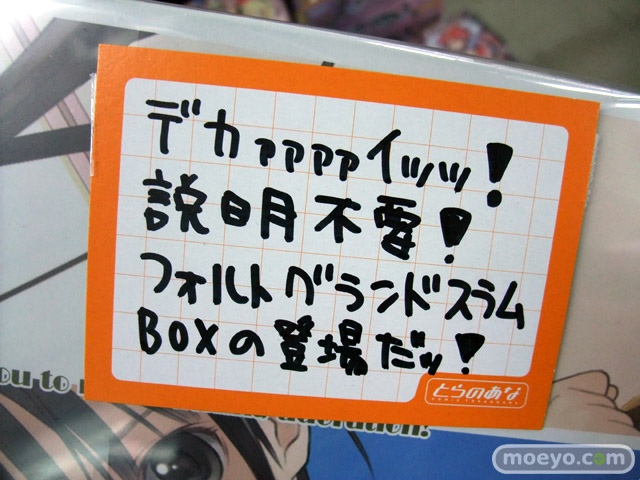 デカァァァァイッッ!
説明不要!
フォルトグランドスラム
BOXの登場だッ!
とらのあな
moeyo.com